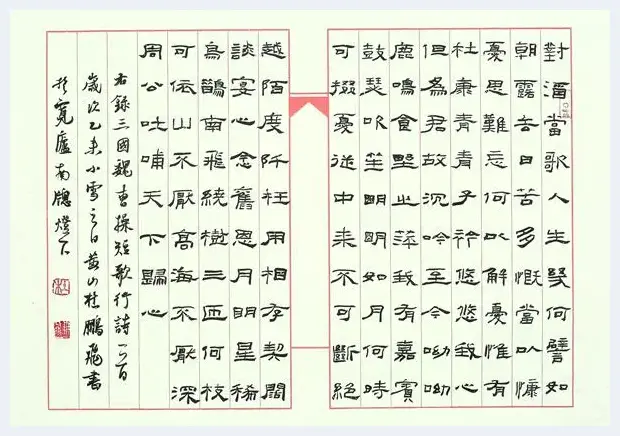 對酒當歌人生幾何譬如
朝露去日苦多慨當以慷
憂思難忘何以解憂惟有
杜康青青子衿悠悠我心
但為君故沉吟至今呦呦
鹿鳴食野之苹我有嘉賓
鼓瑟吹笙明明如月何時
可掇憂從中来不可斷絕
越陌度阡枉用相存契闊
談宴心念舊恩月明星稀
烏鵲南飛繞樹三匝何枝
可依山不厭高海不厭深
周公吐哺天下歸心
右錄三國魏曹操短歌行詩一首
歲次乙未小雪之日黃山杜鵬飛書
於寬廬南牕燈下